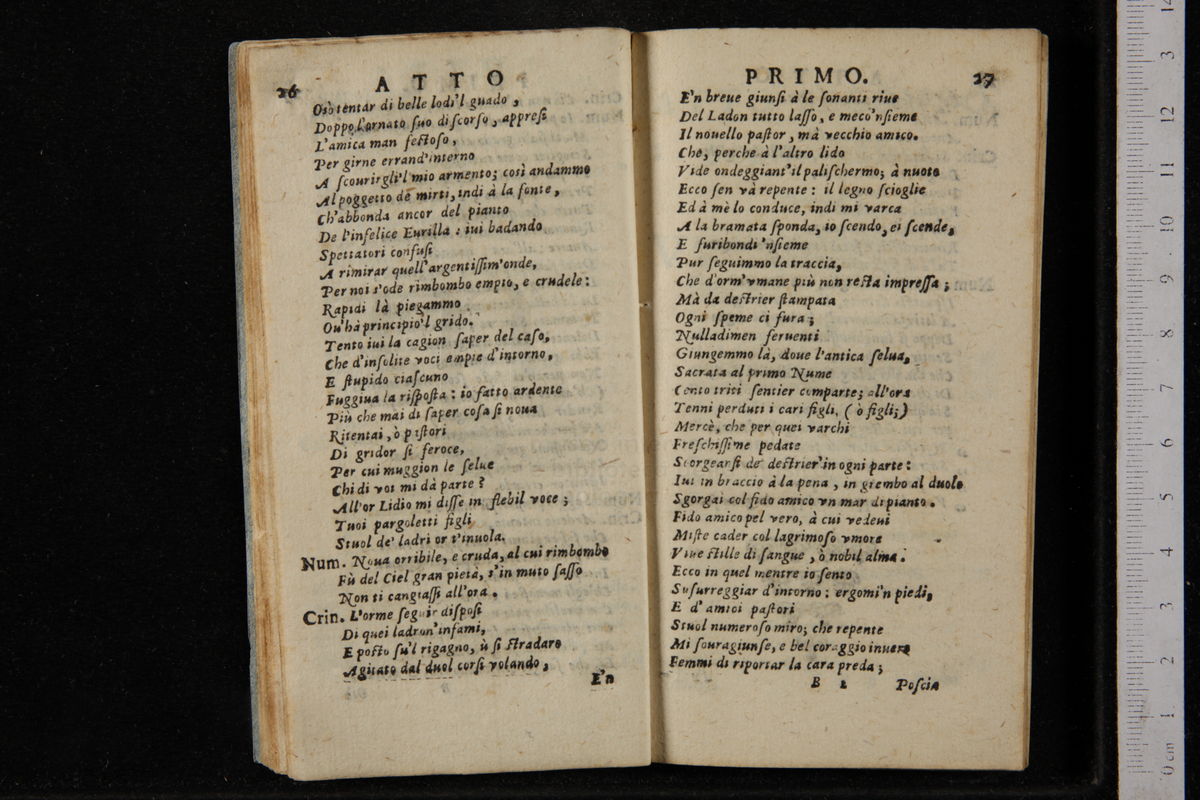 26 ATTO
Osò tentar di belle lodi'l guado,
Doppo l'ornato suo discorso, appresi
L'amica man festoso,
Per girne errand'interno
A scourirgli'l mio armento; così andammo
Al poggetto de mirti, indi à la fonte,
Ch'abbonda ancor del pianto
De l'infelice Eurilla: iui badando
Spettatori confusi
A rimirar quell'argentissim'onde,
Per noi s'ode rimbombo empio, e crudele:
Rapidi là piegammo
Ou'hà principio'l grido.
Tento iui la cagion saper del caso,
Che d'insolite voci empie d'intorno,
E stupido ciascuno
Fuggiua la risposta: io fatto ardente
Più che mai di saper cosa sì noua
Ritentai, ò pastori
Di gridor sì feroce,
Per cui muggion le selue
Chi di voi mi dà parte?
All'or Lidio mi disse in flebil voce;
Tuoi pargoletti figli
Stuol de' ladri or t'inuola.
Num. Noua orribile, e cruda, al cui rimbombo
Fù del Ciel gran pietà, s'in muto sasso
Non ti cangiassi all'ora.
Crin. L'orme seguir disposi
Di quei ladron'infami,
E posto su'l rigagno, ù si stradaro
Agitato dal duol corsi volando,
E'n
PRIMO. 27
E'n breue giunsi à le sonanti riue
Del Ladon tutto lasso, e meco'nsieme
Il nouello pastor, mà vecchio amico.
Che, perche à l'altro lido
Vide ondeggiant'il palischermo; à nuoto
Ecco sen và repente: il legno scioglie
Ed à mè lo conduce, indi mi varca
A la bramata sponda, io scendo, ei scende,
E furibondi 'nsieme
Pur seguimmo la traccia,
Che d'orm'vmane più non resta impressa;
Mà da destrier stampata
Ogni speme ci fura;
Nulladimen feruenti
Giungemmo là, doue l'antica selua,
Sacrata al primo Nume
Cento triti sentier comparte; all'ora
Tenni perduti i cari figli, (ò figli;)
Mercè, che per quei varchi
Freschissime pedate
Scorgearsi de' destrier'in ogni parte:
Iui in braccio à la pena, in grembo al duolo
Sgorgai col fido amico vn mar di pianto.
Fido amico pel vero, à cui vedeui
Miste cader col lagrimoso vmore
Viue stille di sangue, ò nobil alma.
Ecco in quel mentre io sento
Susurreggiar d'intorno: ergomi'n piedi,
E d'amici pastori
Stuol numeroso miro; che repente
Mi souragiunse, e bel coraggio inuero
Femmi di riportar la cara preda;
B 2 Poscia